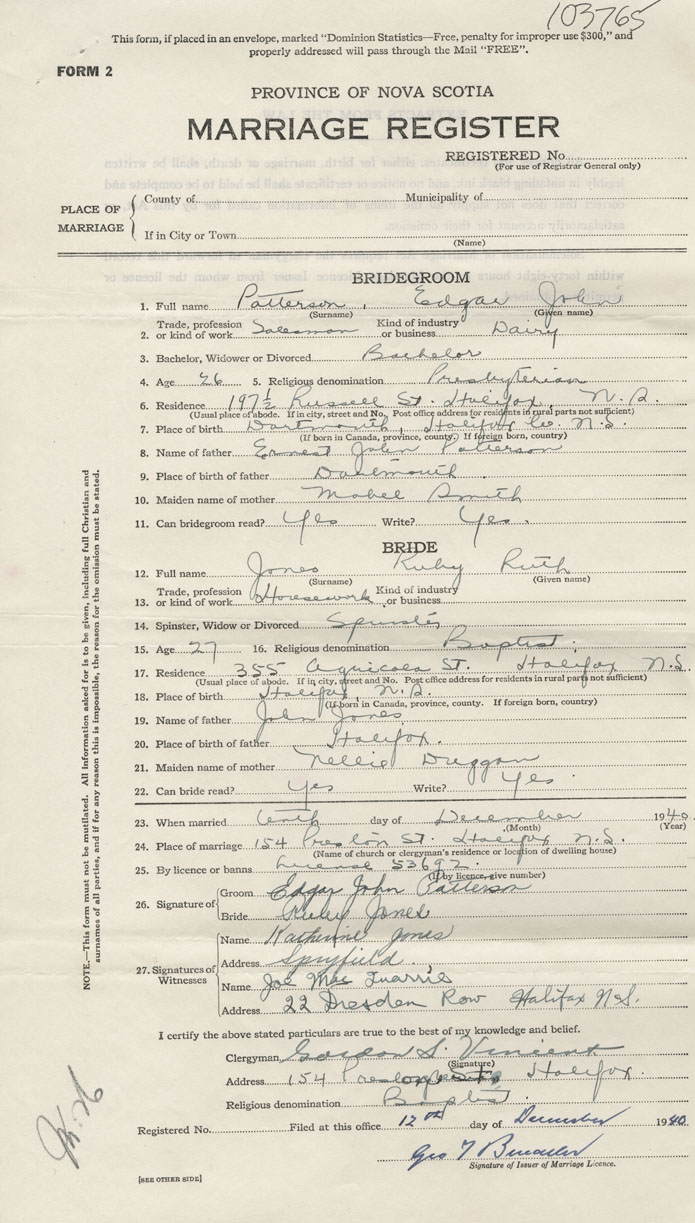 103765
This form, if placed in an envelope, marked "Dominion Statistics—Free, penalty for improper use $300," and
properly addressed will pass through the Mail "FREE".
FORM 2
PROVINCE OF NOVA SCOTIA
MARRIAGE REGISTER
REGISTERED No.
(For use of Registrar General only)
PLACE OF MARRIAGE
County of Municipality of
If in City or Town
(Name)
BRIDEGROOM
1. Full name Patterson, Edgar John
(Surname) (Given name)
2. Trade, profession or kind of work Salesman Kind of industry or business Dairy
3. Bachelor, Widower or Divorced Bachelor
4. Age 26 5. Religious denomination Presbyterian
6. Residence 197½ Russell St. Halifax, N.S.
(Usual place of abode. If in city, street and No. Post office address for residents in rural parts not sufficient)
7. Place of birth Dartmouth, Halifax Co. N.S.
(If born in Canada, province, county. If foreign born, country)
8. Name of father Ernest John Patterson
9. Place of birth of father Dartmouth
10. Maiden name of mother Mabel Smith
11. Can bridegroom read? Yes Write? Yes.
BRIDE
12. Full name Jones Ruby Ruth
(Surname) (Given name)
13. Trade, profession or kind of work Housework Kind of industry or business
14. Spinster, Widow or Divorced Spinster
15. Age 27 16. Religious denomination Baptist.
17. Residence 355 Agricola St. Halifax N.S.
(Usual place of abode. If in city, street and No. Post office address for residents in rural parts not sufficient)
18. Place of birth Halifax, N.S.
(If born in Canada, province, county. If foreign born, country)
19. Name of father John Jones
20. Place of birth of father Halifax.
21. Maiden name of mother Nellie Duggan
22. Can bride read? Yes Write? Yes
23. When married tenth day of December 1940.
(Month) (Year)
24. Place of marriage 154 Preston St. Halifax N.S.
(Name of church or clergyman's residence or location of dwelling house)
25. By licence or banns License 53692.
(If by licence, give number)
26. Signature of
Groom Edgar John Patterson
Bride Ruby Jones
27. Signatures of Witnesses
Name Katherine Jones
Address Spryfield.
Name Joe Mac
Address 22 Dresden Row Halifax N.S.
I certify the above stated particulars are true to the best of my knowledge and belief.
Clergyman Gordon S. Vincent
(Signature)
Address 154 Preston St. Halifax.
Religious denomination Baptist.
Registered No. Filed at this office 12th day of December 1940
Geo
Signature of Issuer of Marriage Licence.
[SEE OTHER SIDE]
NOTE.—This form must not be mutilated. All information asked for is to be given, including full Christian and
surnames of all parties, and if for any reason this is impossible, the reason for the omission must be stated.